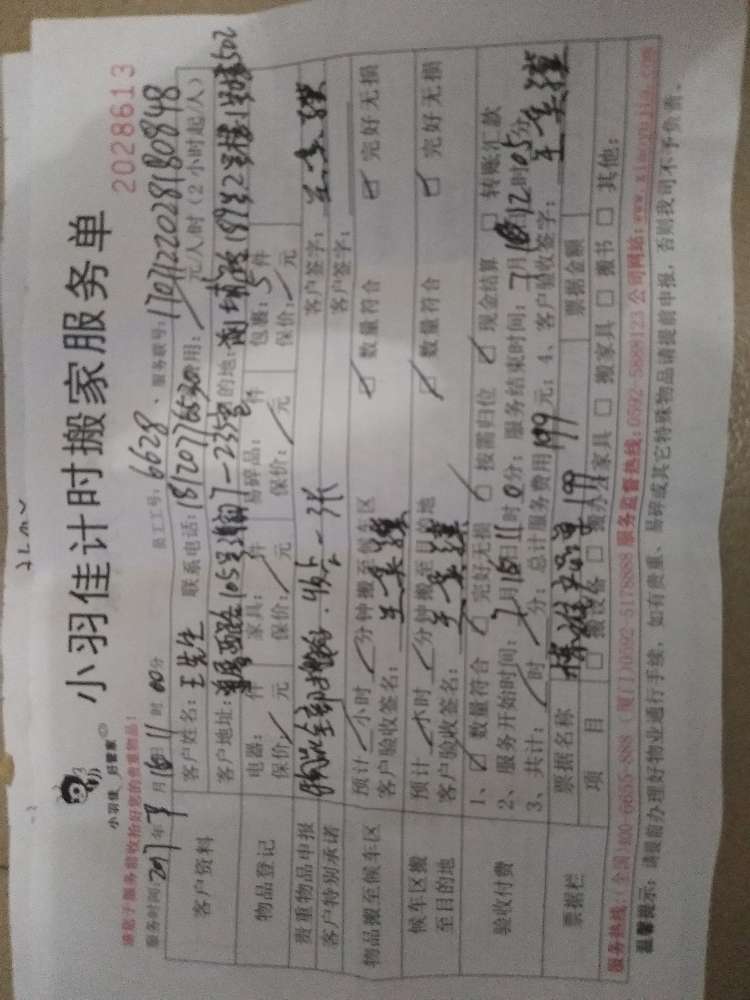 小羽佳计时搬家服务单
2028613
小羽佳 好管家
请您于服务前收拾好您的贵重物品!
服务时间:2017年7月16日11时00分 员工工号:6628 服务联号:1707122028180848
客户资料
客户姓名:王先生 联系电话:18120776530 费用: 元/人时(2小时起/人)
客户地址: 目的地:
物品登记
电器: 件 家具: 件 易碎品: 件 包裹:5件
保价: 元 保价: 元 保价: 元 保价: 元
贵重物品申报 客户签字:
客户特别承诺 客户签字:
物品搬至候车区
预计 小时 分钟搬至候车区 数量符合 完好无损
客户验收签名:
候车区搬至目的地
预计 小时 分钟搬至目的地 数量符合 完好无损
客户验收签名:
验收付费
1、数量符合 完好无损 按需归位 现金结算 转账汇款
2、服务开始时间:7月16日11时0分; 服务结束时间:7月16日12时05分
3、共计: 时 分; 总计服务费用199元; 4、客户验收签字:
票据栏
票据名称 199 票据金额
项目 搬设备 搬办公家具 搬家具 搬书 其他:
服务热线:(全国)400-6655-888 (厦门)0592-5178888 服务监督热线:0592-5888123 公司网站:www.xiaoyujia.com
温馨提示:请提前办理好物业通行手续,如有贵重、易碎或其它特殊物品请提前申报,否则我司不予负责。